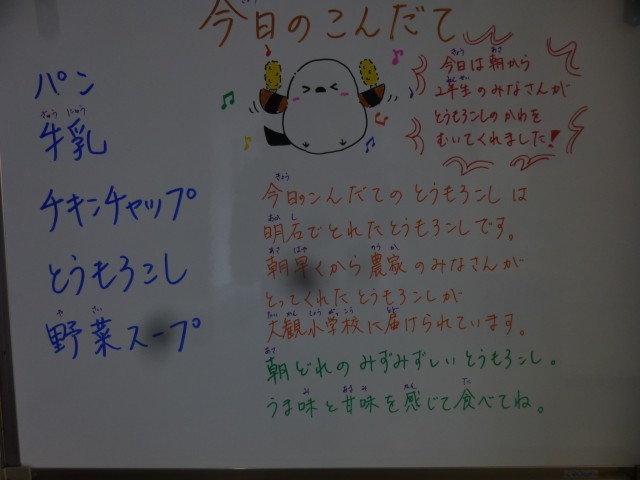 今日のこんだて
パン
牛乳
チキンチャップ
とうもろこし
野菜スープ
今日は朝から
2年生のみなさんが
とうもろこしのかわを
むいてくれました!
今日のこんだてのとうもろこしは
明石でとれたとうもろこしです。
朝早くから農家のみなさんが
とってくれたとうもろこしが
大観小学校に届けられています。
朝どれのみずみずしいとうもろこし。
うま味と甘味を感じて食べてね。